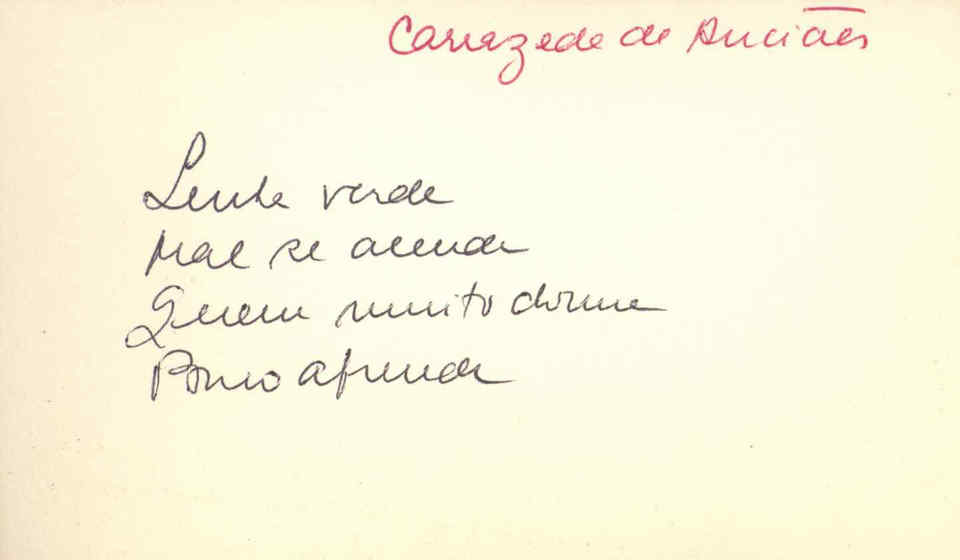 Carrazede de Anciães
Lenha verde
Mal se acende
Quem muito dorme
Pouco aprende